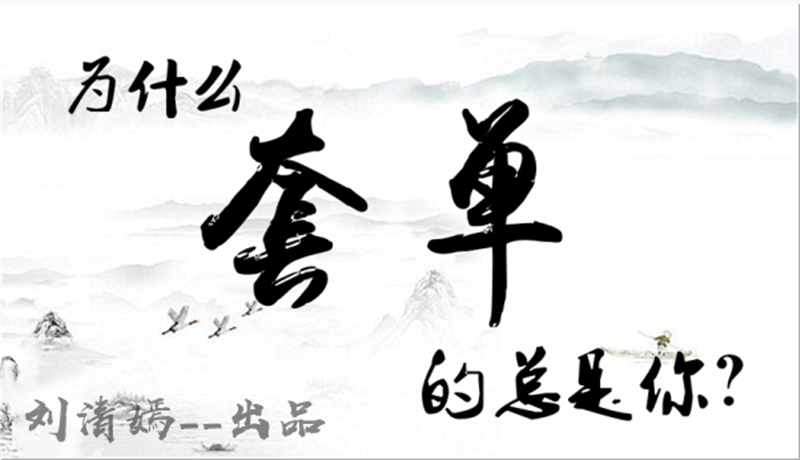 为什么
套单
的总是你？
刘清嫣--出品